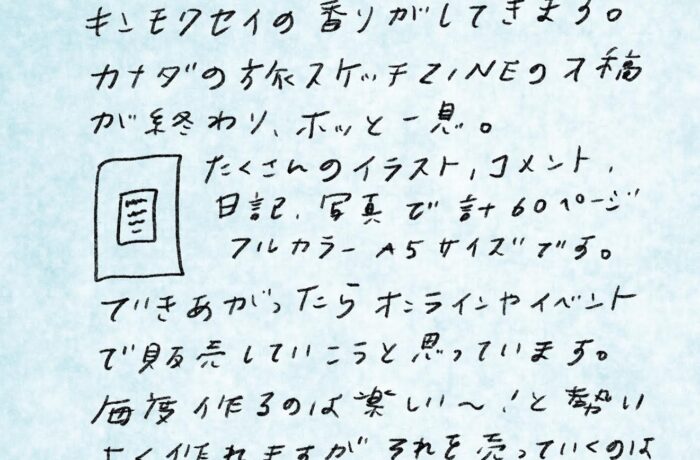 キンモクセイの香りがしてきます。
カナダの旅スケッチZINEの入稿
が終わり、ホッと一息。
たくさんのイラスト、コメント、
日記、写真で計60ページ
フルカラーA5サイズです。
できあがったらオンラインやイベント
で販売していこうと思っています。
毎度作るのは楽しい〜!と勢い
よく作れますが それを売っていくのは